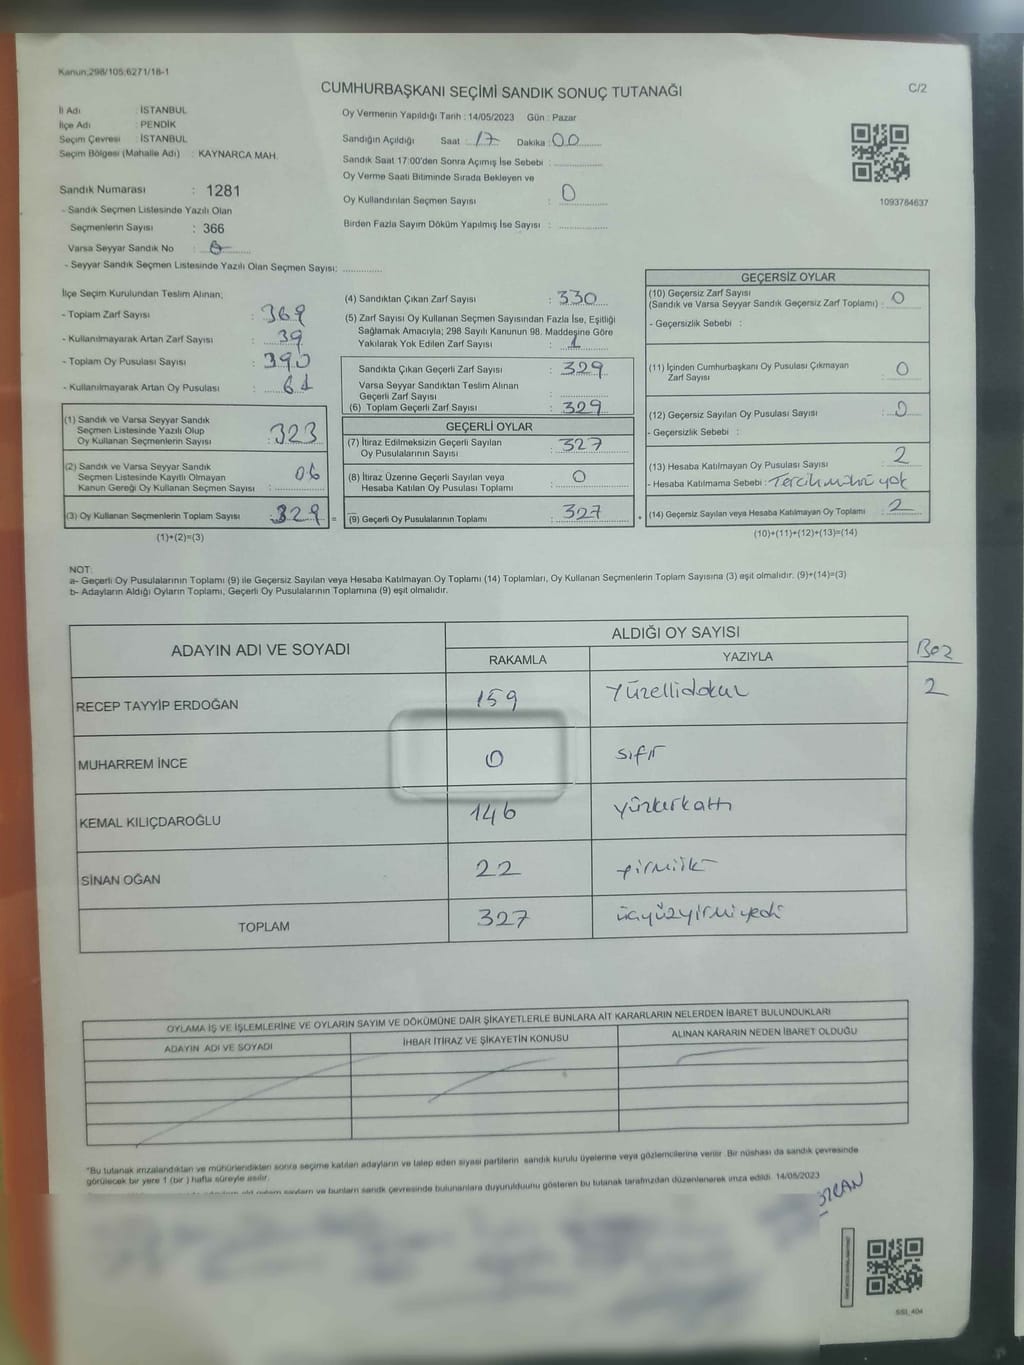 Kanun:298/105;6271/18-1
CUMHURBAŞKANI SEÇİMİ SANDIK SONUÇ TUTANAĞI
C/2
İl Adı : İSTANBUL
İlçe Adı : PENDİK
Seçim Çevresi : İSTANBUL
Seçim Bölgesi (Mahalle Adı) : KAYNARCA MAH.
Sandık Numarası : 1281
- Sandık Seçmen Listesinde Yazılı Olan
Seçmenlerin Sayısı : 366
Varsa Seyyar Sandık No : 0
- Seyyar Sandık Seçmen Listesinde Yazılı Olan Seçmen Sayısı: ............
Oy Vermenin Yapıldığı Tarih : 14/05/2023 Gün : Pazar
Sandığın Açıldığı Saat : 17 Dakika : 00
Sandık Saat 17:00'den Sonra Açımış İse Sebebi : ............
Oy Verme Saati Bitiminde Sırada Bekleyen ve
Oy Kullandırılan Seçmen Sayısı : 0
Birden Fazla Sayım Döküm Yapılmış İse Sayısı : ............
1093784637
İlçe Seçim Kurulundan Teslim Alınan;
- Toplam Zarf Sayısı : 369
- Kullanılmayarak Artan Zarf Sayısı : 39
- Toplam Oy Pusulası Sayısı : 390
- Kullanılmayarak Artan Oy Pusulası : 61
(1) Sandık ve Varsa Seyyar Sandık
Seçmen Listesinde Yazılı Olup
Oy Kullanan Seçmenlerin Sayısı : 323
(2) Sandık ve Varsa Seyyar Sandık
Seçmen Listesinde Kayıtlı Olmayan
Kanun Gereği Oy Kullanan Seçmen Sayısı : 06
(3) Oy Kullanan Seçmenlerin Toplam Sayısı : 329
(1)+(2)=(3)
(4) Sandıktan Çıkan Zarf Sayısı : 330
(5) Zarf Sayısı Oy Kullanan Seçmen Sayısından Fazla İse, Eşitliği
Sağlamak Amacıyla; 298 Sayılı Kanunun 98. Maddesine Göre
Yakılarak Yok Edilen Zarf Sayısı : 1
Sandıkta Çıkan Geçerli Zarf Sayısı : 329
Varsa Seyyar Sandıktan Teslim Alınan
Geçerli Zarf Sayısı : ............
(6) Toplam Geçerli Zarf Sayısı : 329
GEÇERLİ OYLAR
(7) İtiraz Edilmeksizin Geçerli Sayılan
Oy Pusulalarının Sayısı : 327
(8) İtiraz Üzerine Geçerli Sayılan veya
Hesaba Katılan Oy Pusulası Toplamı : 0
(9) Geçerli Oy Pusulalarının Toplamı : 327
GEÇERSİZ OYLAR
(10) Geçersiz Zarf Sayısı
(Sandık ve Varsa Seyyar Sandık Geçersiz Zarf Toplamı) : 0
- Geçersizlik Sebebi :
(11) İçinden Cumhurbaşkanı Oy Pusulası Çıkmayan
Zarf Sayısı : 0
(12) Geçersiz Sayılan Oy Pusulası Sayısı : 0
- Geçersizlik Sebebi :
(13) Hesaba Katılmayan Oy Pusulası Sayısı : 2
- Hesaba Katılmama Sebebi : Tercih mührü yok
(14) Geçersiz Sayılan veya Hesaba Katılmayan Oy Toplamı : 2
(10)+(11)+(12)+(13)=(14)
NOT:
a- Geçerli Oy Pusulalarının Toplamı (9) ile Geçersiz Sayılan veya Hesaba Katılmayan Oy Toplamı (14) Toplamları, Oy Kullanan Seçmenlerin Toplam Sayısına (3) eşit olmalıdır. (9)+(14)=(3)
b- Adayların Aldığı Oyların Toplamı, Geçerli Oy Pusulalarının Toplamına (9) eşit olmalıdır.
ADAYIN ADI VE SOYADI
ALDIĞI OY SAYISI
RAKAMLA YAZIYLA
RECEP TAYYİP ERDOĞAN 159 Yüzellidokuz
MUHARREM İNCE 0 sıfır
KEMAL KILIÇDAROĞLU 146 yüzkırkaltı
SİNAN OĞAN 22 yirmiiki
TOPLAM 327 üçyüzyirmiyedi
Boz
2
OYLAMA İŞ VE İŞLEMLERİNE VE OYLARIN SAYIM VE DÖKÜMÜNE DAİR ŞİKAYETLERLE BUNLARA AİT KARARLARIN NELERDEN İBARET BULUNDUKLARI
ADAYIN ADI VE SOYADI İHBAR İTİRAZ VE ŞİKAYETİN KONUSU ALINAN KARARIN NEDEN İBARET OLDUĞU
"Bu tutanak imzalandıktan ve mühürlendikten sonra seçime katılan adayların ve talep eden siyasi partilerin sandık kurulu üyelerine veya gözlemcilerine verilir. Bir nüshası da sandık çevresinde
görülecek bir yere 1 (bir ) hafta süreyle asılır.
bunların sandık çevresinde bulunanlara duyurulduğunu gösteren bu tutanak tarafımızdan düzenlenerek imza edildi. 14/05/2023
SSI_404